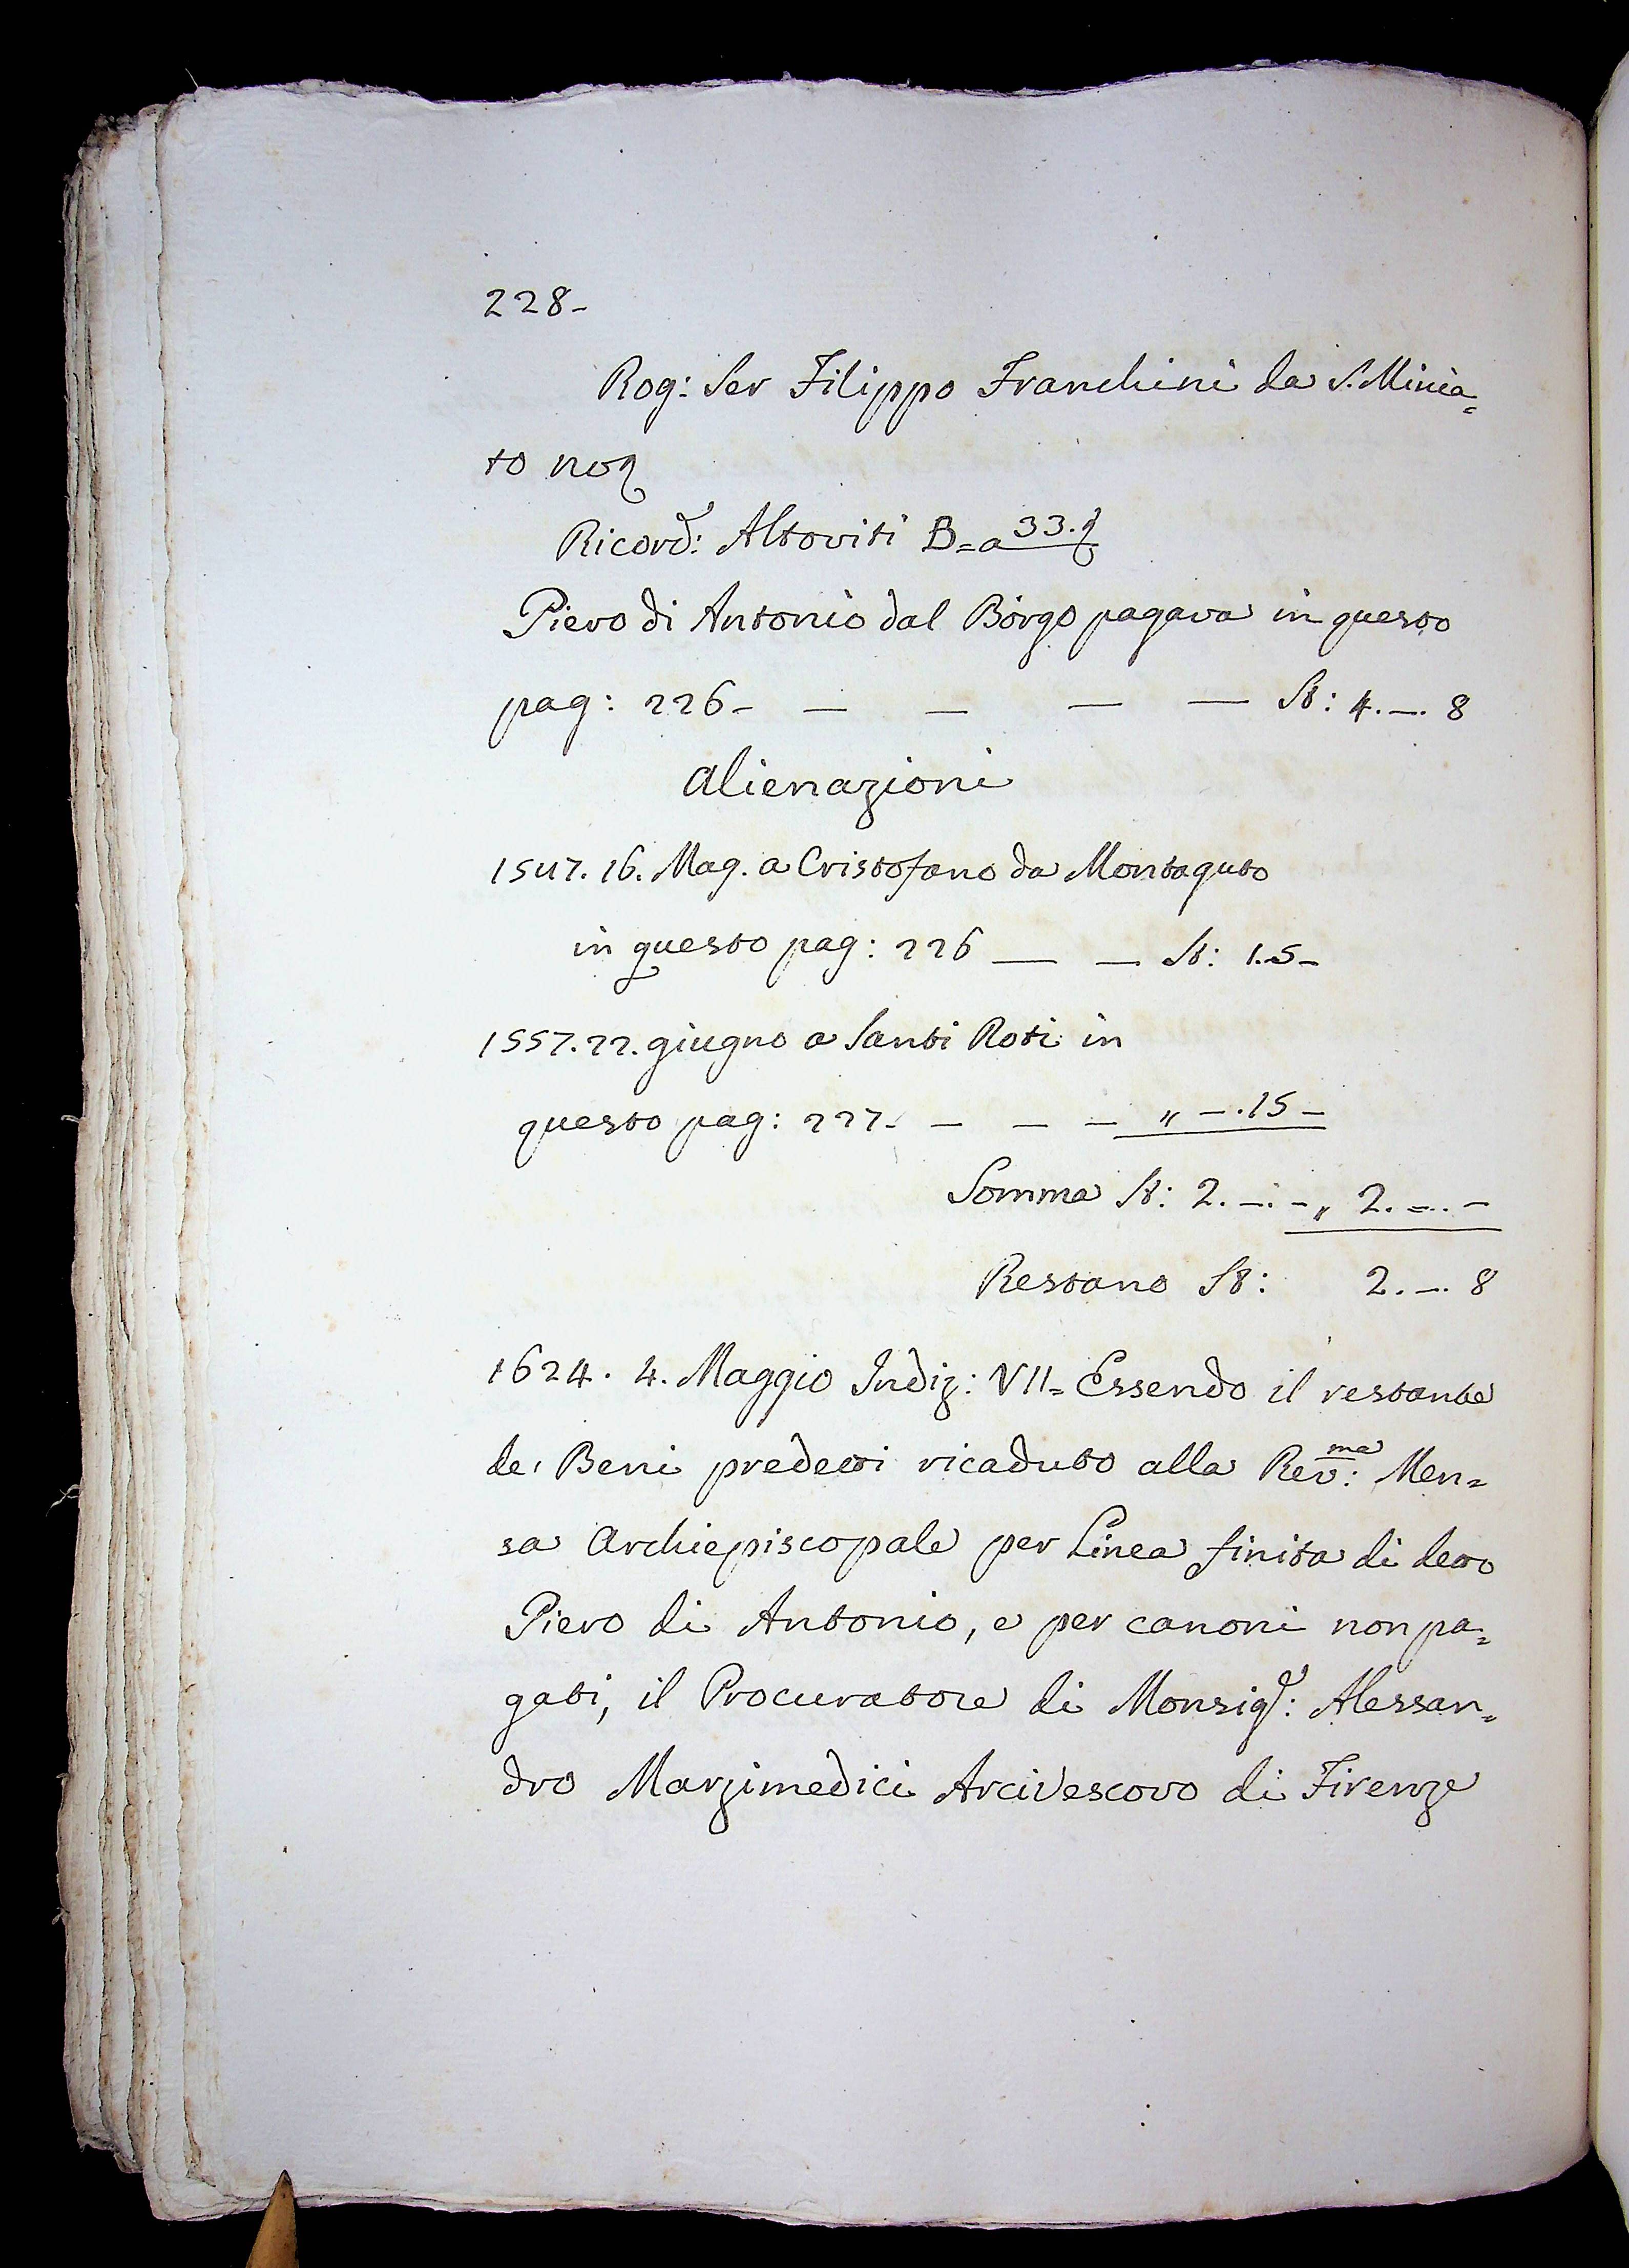 228-
Rog: Ser Filippo Franchini da S. Minia=
to no
Ricord: Altoviti B=a 33.
Piero di Antonio dal Borgo pagava in questo
pag: 226- — — — — St: 4.—. 8
Alienazioni
1547. 16. Mag. a Cristofano da Montaguto
in questo pag: 226 — — St: 1.5-
1557. 22. giugno a Santi Roti in
questo pag: 227- — — — „ —.15 —
Somma St: 2.—.-„ 2.—.—
Restano St: 2.—. 8
1624. 4. Maggio Indiz: VII= Essendo il restante
de' Beni predetti ricaduto alla Rev:ma Men=
sa Archiepiscopale per Linea finita di detto
Piero di Antonio, e per canoni non pa=
gati, il Procuratore di Monsigr: Alessan=
dro Marzimedici Arcivescovo di Firenze